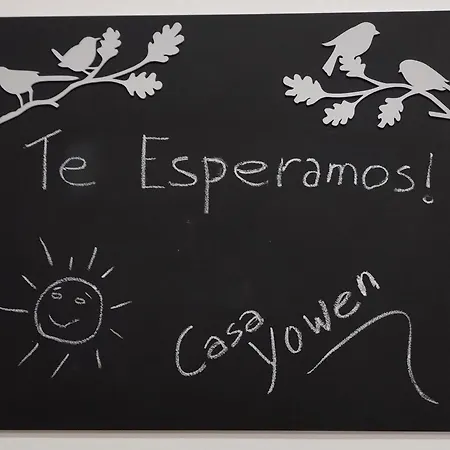 Te Esperamos!
Casa
Yowen